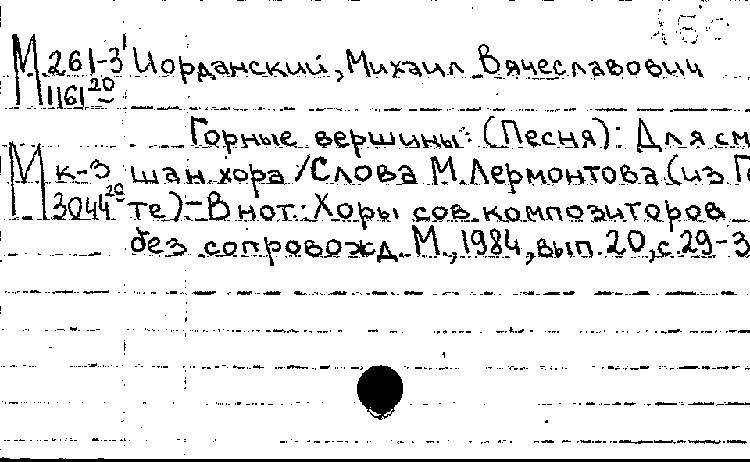 М 261-3 Иорданский, Михаил Вячеславович
1161 20
Горные вершины: (Песня): Для см
М к-3 шан. хора / Слова М. Лермонтова (из Г
3044 20 те) - В нот.: Хоры сов. композиторов
без сопровожд. М., 1984, вып. 20, с. 29-3